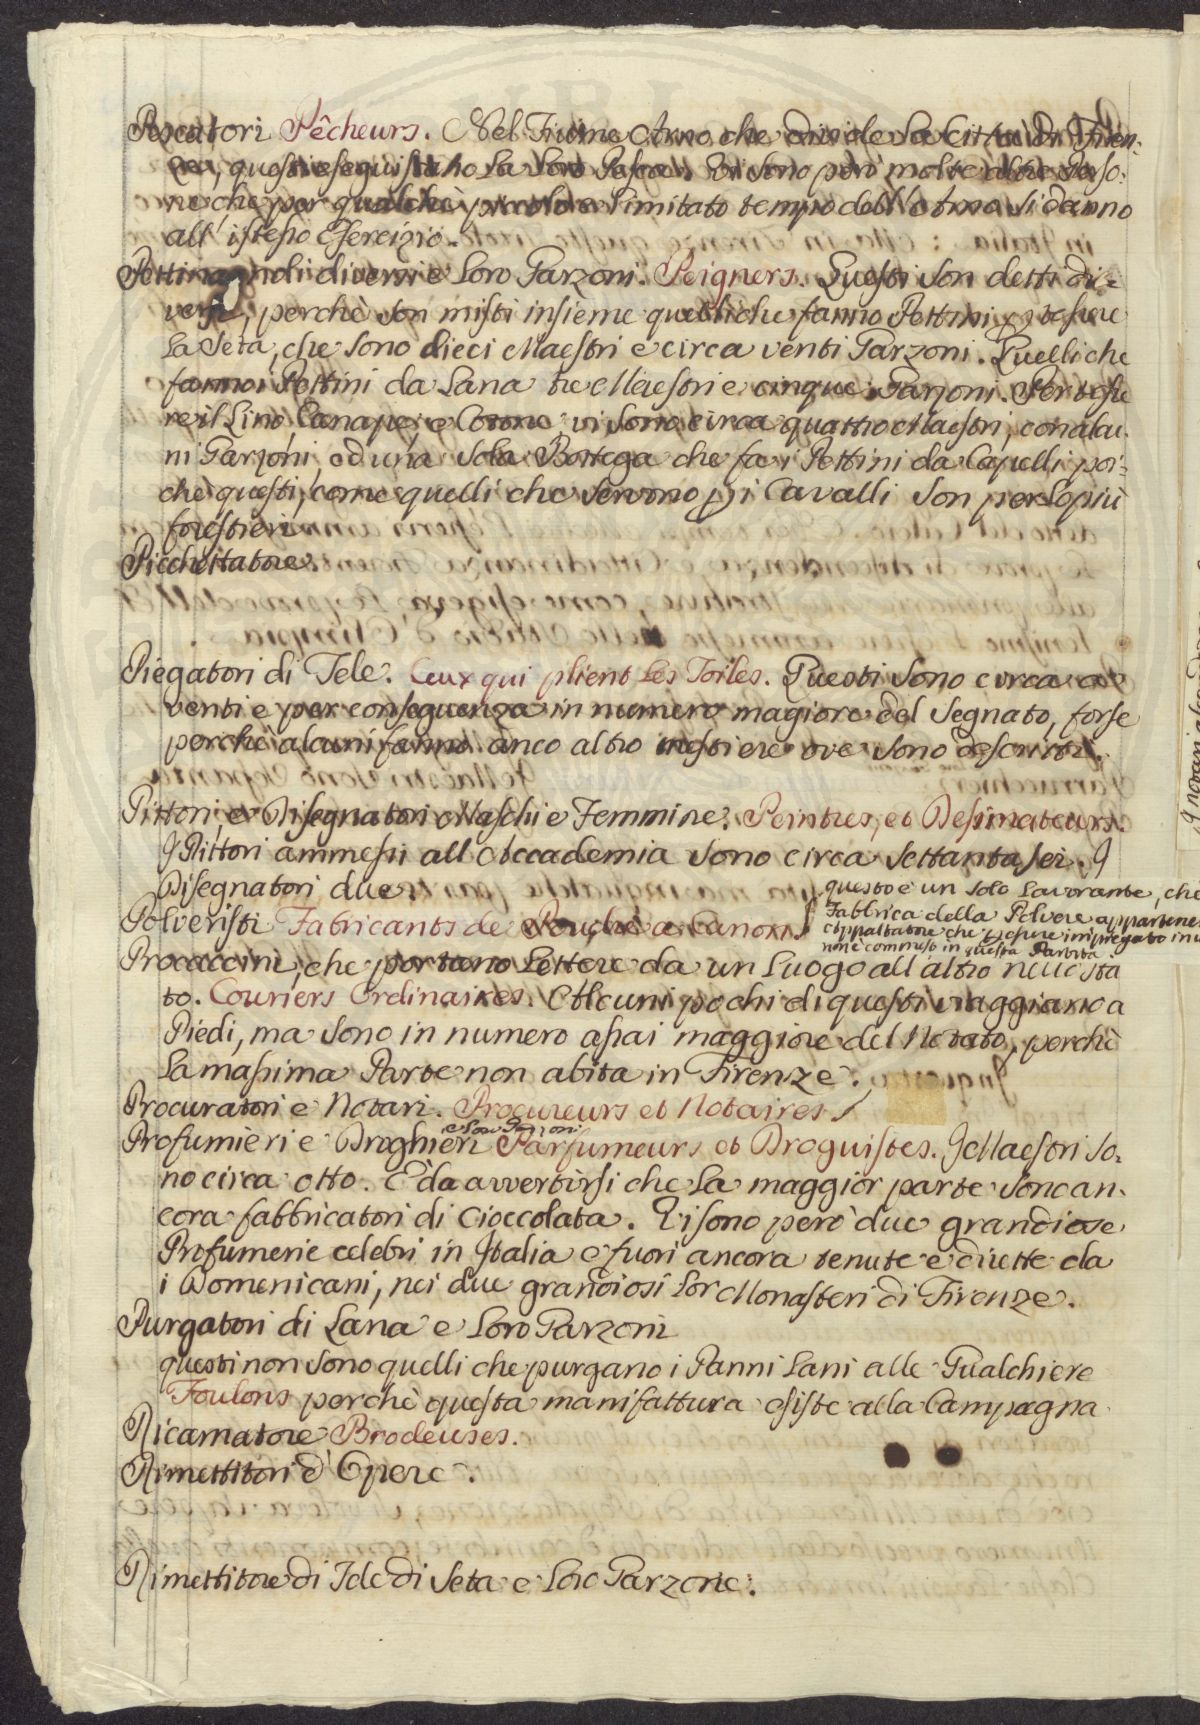 Pescatori Pêcheurs. Nel Fiume Arno che divide la Città di Firen-
ze, questi eseguiscono la loro Pesca. Vi sono però molte altre Perso-
ne che per qualche piccolo e limitato tempo dell'Anno si danno
all'istesso Esercizio.
Pettinagnoli diversi e loro Garzoni. Peigners. Questi son detti di-
versi, perchè son misti insieme quelli che fanno Pettini p tessere
la Seta, che sono dieci Maestri e circa venti Garzoni. Quelli che
fanno i Pettini da Lana tre Maestri e cinque Garzoni. Per tesse
re il Lino, Canape, e Cotone vi sono circa quattro Maestri, con alcu-
ni Garzoni, ed una sola Bottega che fa i Pettini da Capelli poi-
chè questi, come quelli che servono p i Cavalli son per lo più
forestieri
Picchettatore.
Piegatori di Tele. Ceux qui plient les Toiles. Questi sono circa a
venti e per conseguenza in numero magiore del Segnato, forse
perchè alcuni fanno anco altro mestiere ove sono descritti.
Pittori, e Disegnatori Maschi e Femmine. Peintres, et Desinateurs.
I Pittori ammessi all'Accademia sono circa settanta sei. I
Disegnatori due.
questo è un solo Lavorante, che
Polveristi Fabricants de Poudre a Canons
Fabbrica della Polvere appartene
Appaltatore che p essere impiegato in
non è commesso in questa Partita
Procaccini, che portano Lettere da un Luogo all'altro nello Sta
to. Couriers Ordinaires. Alcuni pochi di questi viaggiano a
Piedi, ma sono in numero assai maggiore del Notato, perchè
la massima Parte non abita in Firenze.
Procuratori e Notari. Procureurs et Notaires
e loro Garzoni
Profumieri e Droghieri Parfumeurs et Droguistes. I Maestri so-
no circa otto. È da avvertirsi che la maggior parte sono an-
cora fabbricatori di Cioccolata. Vi sono però due grandiose
Profumerie celebri in Italia e fuori ancora tenute e dirette da
i Domenicani, nei due grandiosi lor Monasteri di Firenze.
Purgatori di Lana e loro Garzoni
questi non sono quelli che purgano i Panni lani alle Gualchiere
Foulons perchè questa manifattura esiste alla Campagna
Ricamatore Brodeuses.
Rimettitori d'Opere.
Rimettitore di Tele di Seta e loro Garzone.